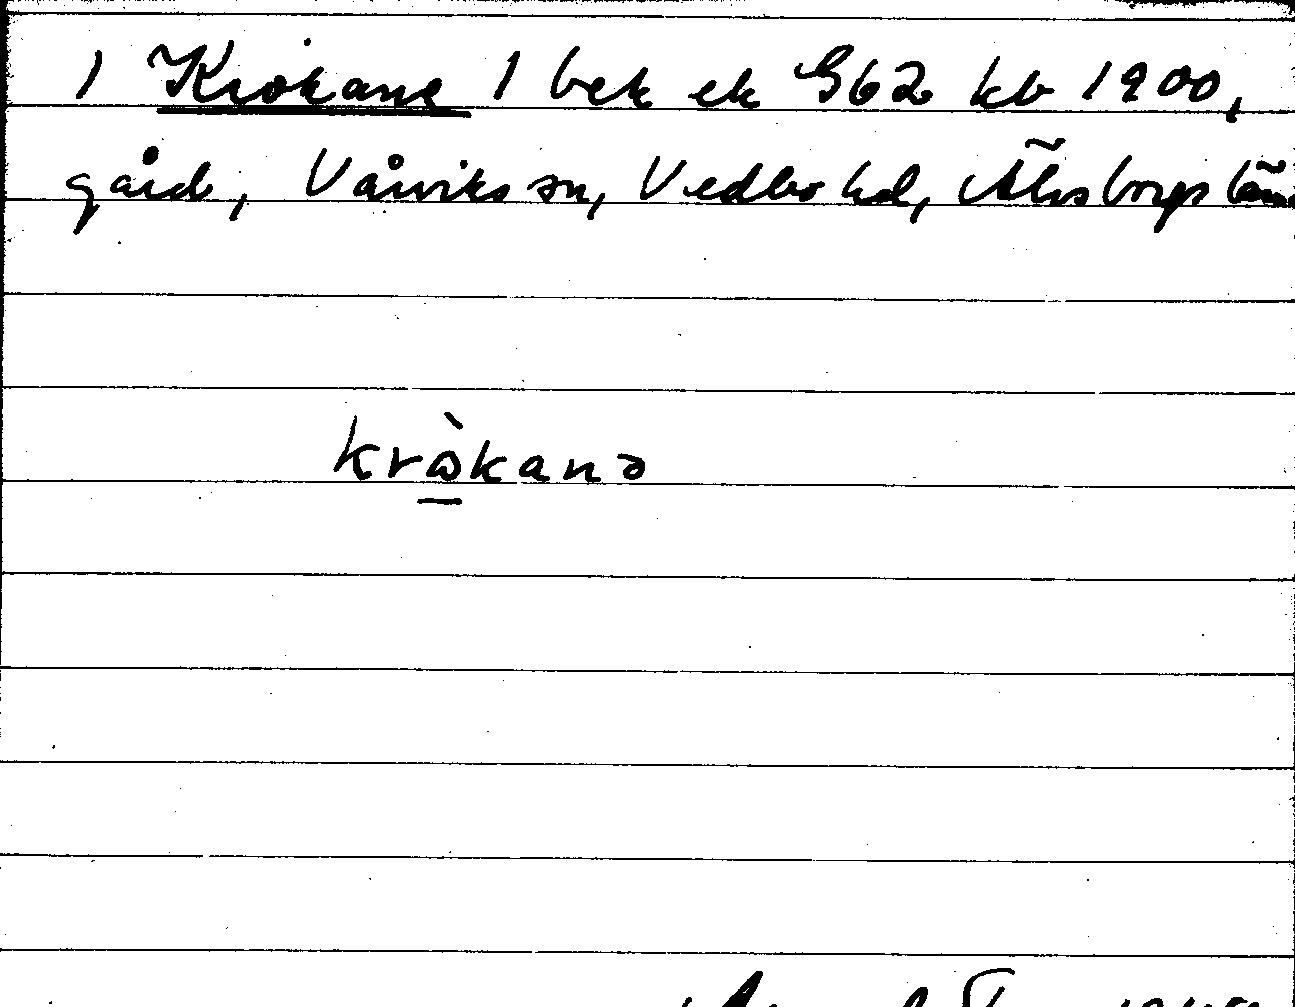 1 Krokane 1 bek ek G62 kb 1900,
gård, Vårviks sn, Vedbo hd, Älvsborgs län
kròkanə